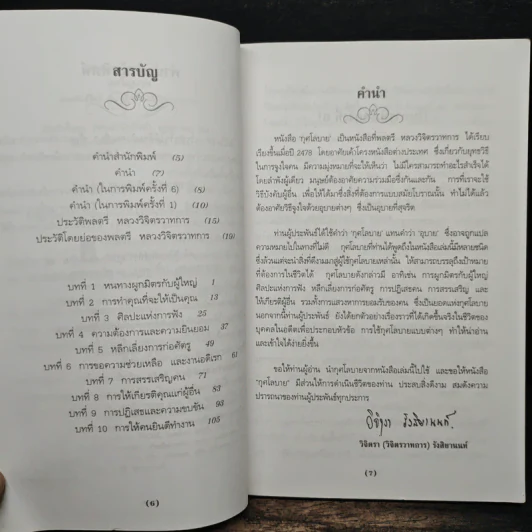 สารบัญ
คำนำสำนักพิมพ์ (5)
คำนำ (7)
คำนำ (ในการพิมพ์ครั้งที่ 6) (8)
คำนำ (ในการพิมพ์ครั้งที่ 1) (10)
ประวัติพลตรี หลวงวิจิตรวาทการ (15)
ประวัติโดยย่อของพลตรี หลวงวิจิตรวาทการ (19)
บทที่ 1 หนทางผูกมิตรกับผู้ใหญ่ 1
บทที่ 2 การทำคุณที่จะให้เป็นคุณ 13
บทที่ 3 ศิลปะแห่งการฟัง 25
บทที่ 4 ความต้องการและความยินยอม 37
บทที่ 5 หลีกเลี่ยงการก่อศัตรู 49
บทที่ 6 การขอความช่วยเหลือ และงานอดิเรก 61
บทที่ 7 การสรรเสริญคน 71
บทที่ 8 การให้เกียรติคุณแก่ผู้อื่น 83
บทที่ 9 การปฏิเสธและความขบขัน 93
บทที่ 10 การให้คนยินดีทำงาน 105
(6)
คำนำ
หนังสือ "กุศโลบาย" เป็นหนังสือที่พลตรี หลวงวิจิตรวาทการ ได้เรียบ
เรียงขึ้นเมื่อปี 2478 โดยอาศัยเค้าโครงหนังสือต่างประเทศ ซึ่งเกี่ยวกับยุทธวิธี
ในการจูงใจคน มีความมุ่งหมายที่จะให้เห็นว่า ไม่มีใครสามารถจะทำอะไรสำเร็จได้
โดยลำพังผู้เดียว มนุษย์ต้องอาศัยความร่วมมือซึ่งกันและกัน การที่เราจะใช้
วิธีบังคับผู้อื่น เพื่อให้ได้มาซึ่งสิ่งที่ต้องการแบบสมัยโบราณนั้น ทำไม่ได้แล้ว
ต้องอาศัยวิธีจูงใจด้วยอุบายต่างๆ ซึ่งเป็นอุบายที่สุจริต
ท่านผู้ประพันธ์ได้ใช้คำว่า "กุศโลบาย" แทนคำว่า "อุบาย" ซึ่งอาจถูกแปล
ความหมายไปในทางที่ไม่ดี กุศโลบายที่ท่านได้พูดถึงในหนังสือเล่มนี้มีหลายชนิด
ซึ่งล้วนแต่จะนำสิ่งที่ดีงามมาสู่ผู้ใช้กุศโลบายเหล่านั้น ให้สามารถบรรลุถึงเป้าหมาย
ที่ต้องการในชีวิตได้ กุศโลบายดังกล่าวมี อาทิเช่น การผูกมิตรกับผู้ใหญ่
ศิลปะแห่งการฟัง การหลีกเลี่ยงการก่อศัตรู การปฏิเสธคน การสรรเสริญ และ
ให้เกียรติผู้อื่น รวมทั้งการแสวงหาการยอมรับของคน ซึ่งเป็นยอดแห่งกุศโลบาย
นอกจากนี้ท่านผู้ประพันธ์ ยังได้ยกตัวอย่างเรื่องราวที่ได้เกิดขึ้นจริงในชีวิตของ
บุคคลในอดีตเพื่อประกอบหัวข้อ การใช้กุศโลบายแบบต่างๆ ทำให้น่าอ่าน
และเข้าใจได้ง่ายยิ่งขึ้น
ขอให้ท่านผู้อ่าน นำกุศโลบายจากหนังสือเล่มนี้ไปใช้ และขอให้หนังสือ
"กุศโลบาย" มีส่วนให้การดำเนินชีวิตของท่าน ประสบสิ่งดีงาม สมดังความ
ปรารถนาของท่านผู้ประพันธ์ทุกประการ
วิจิตรา รังสิยานนท์
วิจิตรา (วิจิตรวาทการ) รังสิยานนท์
(7)